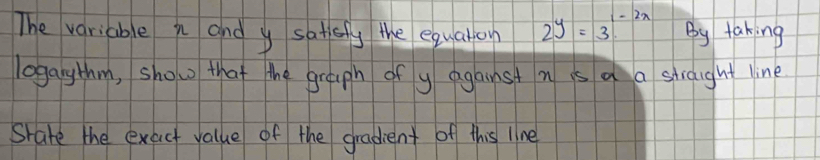 The variable x and y satisfy the equation 2^y = 3^{1-2x} By taking
logarythm, show that the graph of y against x is a a straight line
State the exact value of the gradient of this line